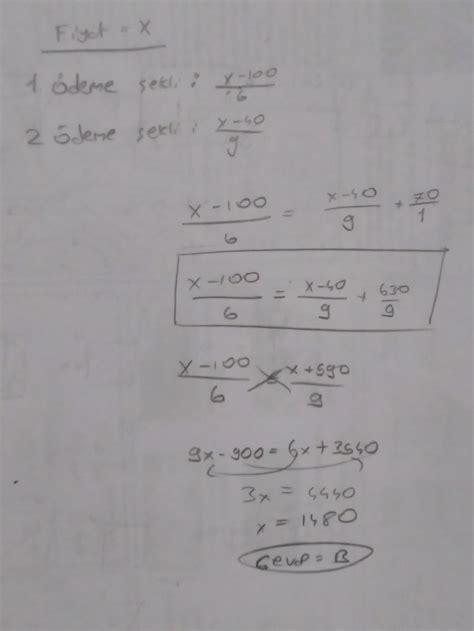 Fiyat = x
1 ödeme şekli : x-100/6
2 ödeme şekli : x-40/9
x-100/6 = x-40/9 + 70/1
x-100/6 = x-40/9 + 630/9
x-100/6 = x+590/9
9x-900 = 6x+3540
3x = 4440
x = 1480
Cevap = B